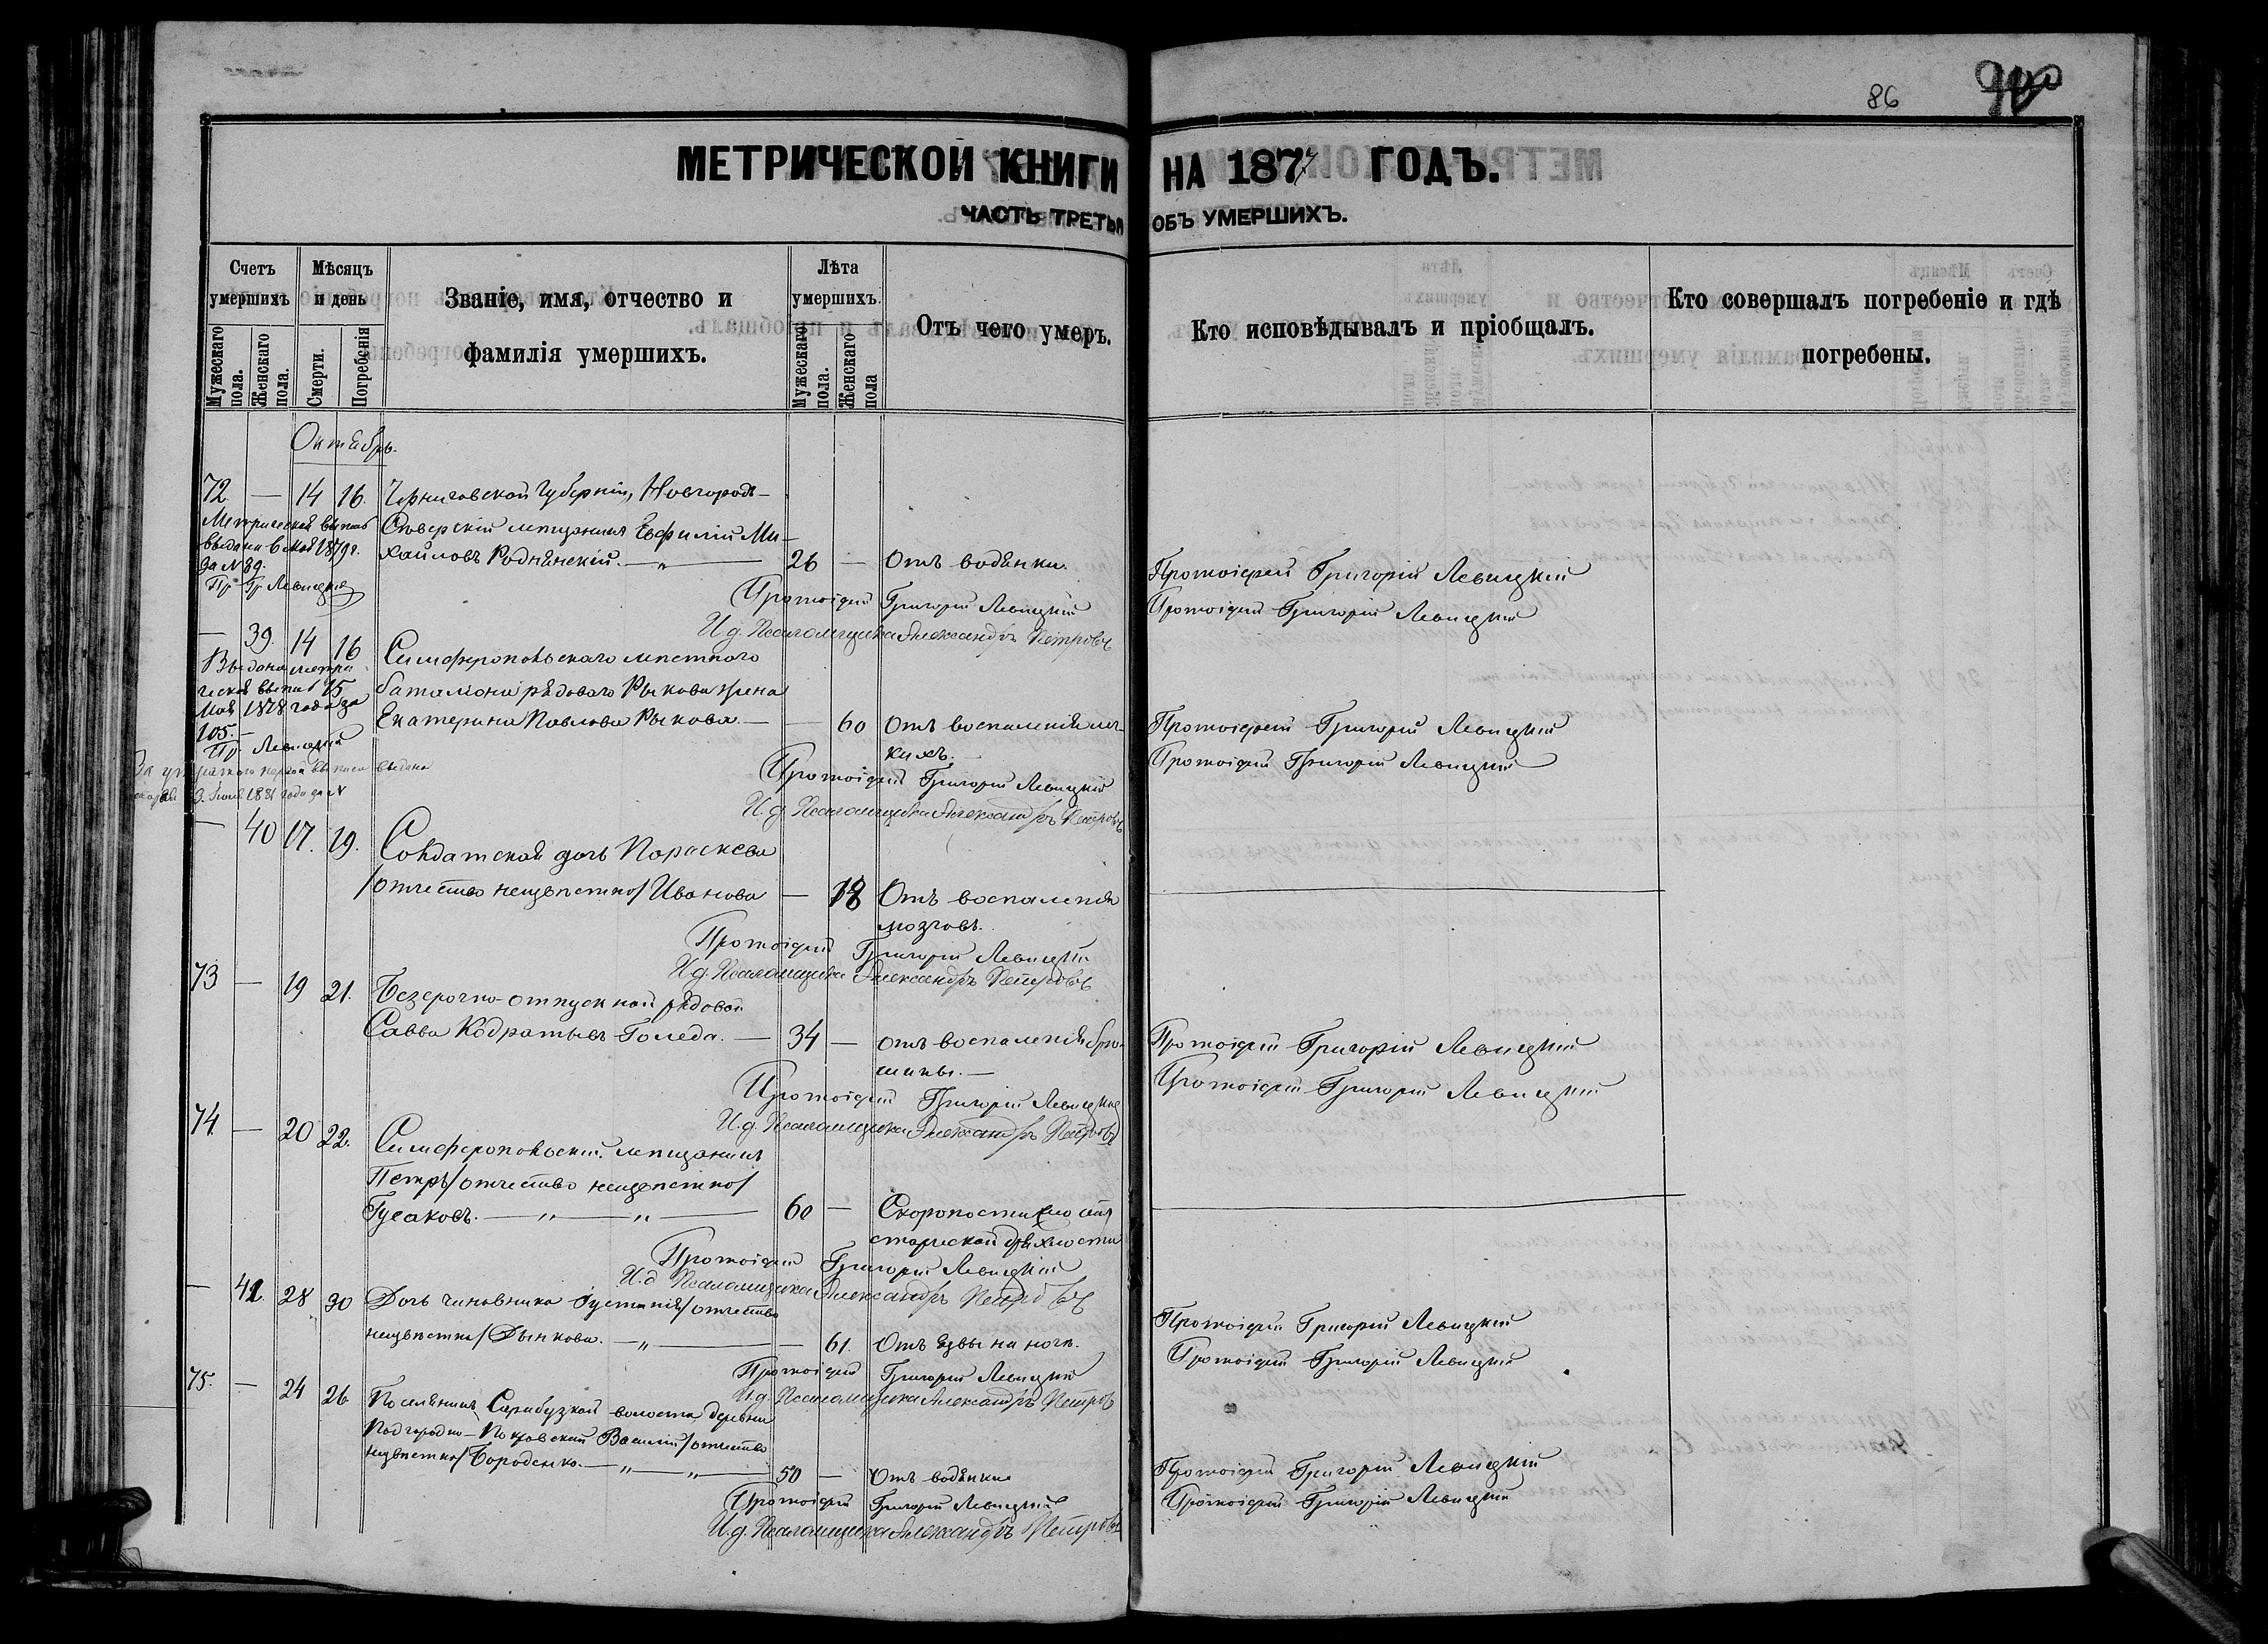 86
МЕТРИЧЕСКОЙ КНИГИ НА 1877 ГОДЪ.
ЧАСТЬ ТРЕТЬЯ ОБЪ УМЕРШИХЪ.
Счетъ умершихъ
Мужескаго пола.
Женскаго пола.
Мѣсяцъ и день
Смерти.
Погребенія
Званіе, имя, отчество и
фамилія умершихъ.
Лѣта умершихъ.
Мужескаго пола.
Женскаго пола
Отъ чего умеръ.
Кто исповѣдывалъ и пріобщалъ.
Кто совершалъ погребеніе и гдѣ
погребены.
Октябрь.
72. — 14 16. Черниговской Губерніи, Новгородъ-
Сѣверскій мѣщанинъ Евфимій Ми-
хайловъ Роднянскій. — 26 — Отъ водянки.
Метрическая выпись
выдана 6 мая 1879 г.
за № 89.
Пр. Гр. Левицкій
Протоіерей Григорій Левицкій
Протоіерей Григорій Левицкій
Протоіерей Григорій Левицкій
И. д. Псаломщика Александръ Петровъ
— 39. 14 16 Симферопольскаго мѣстнаго
баталіона рядоваго Рыкова жена
Екатерина Павлова Рыкова — — 60 Отъ воспаленія лег-
кихъ.
Выдана метри-
ческая выпись 15
Мая 1878 года за
105. —
Пр. Левицкій
За утратою первой выписи выдана
Іюня 1881 года за №
Протоіерей Григорій Левицкій
Протоіерей Григорій Левицкій
Протоіерей Григорій Левицкій
И. д. Псаломщика Александръ Петровъ
— 40 17. 19. Солдатская дочь Параскева
/отчество неизвѣстно/ Иванова — 18 Отъ воспаленія
мозговъ.
Протоіерей Григорій Левицкій
И. д. Псаломщика Александръ Петровъ
73 — 19 21. Безсрочно-отпускной рядовой
Савва Кодратьевъ Голеда. — 34 — отъ воспаленія брю-
шины. —
Протоіерей Григорій Левицкій
Протоіерей Григорій Левицкій
Протоіерей Григорій Левицкій
И. д. Псаломщика Александръ Петровъ
74 — 20 22. Симферопольскій мѣщанинъ
Петръ /отчество неизвѣстно/
Гусаковъ. — „ — „ — 60 — Скоропостижно отъ
старческой дряхлости
Протоіерей Григорій Левицкій
И. д. Псаломщика Александръ Петровъ
— 41. 28 30 Дочь чиновника Іустинія /отчество
неизвѣстно/ Дынкова. — „ — — 61. Отъ язвы на ногѣ.
Протоіерей Григорій Левицкій
Протоіерей Григорій Левицкій
Протоіерей Григорій Левицкій
И. д. Псаломщика Александръ Петровъ
75. — 24 26 Поселянинъ Сарабузской волости деревни
Подгородно-Петровской Василій /отчество
неизвѣстно/ Бороденко. — „ — „ — 50 — Отъ водянки
Протоіерей Григорій Левицкій
Протоіерей Григорій Левицкій
Протоіерей Григорій Левицкій
И. д. Псаломщика Александръ Петровъ